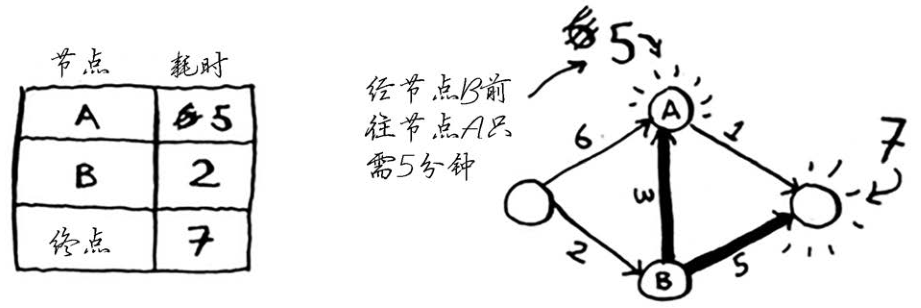 节点 耗时
A 5
B 2
终点 7
经节点B前
往节点A只
需5分钟
5
A
6
1
7
3
2
B
5